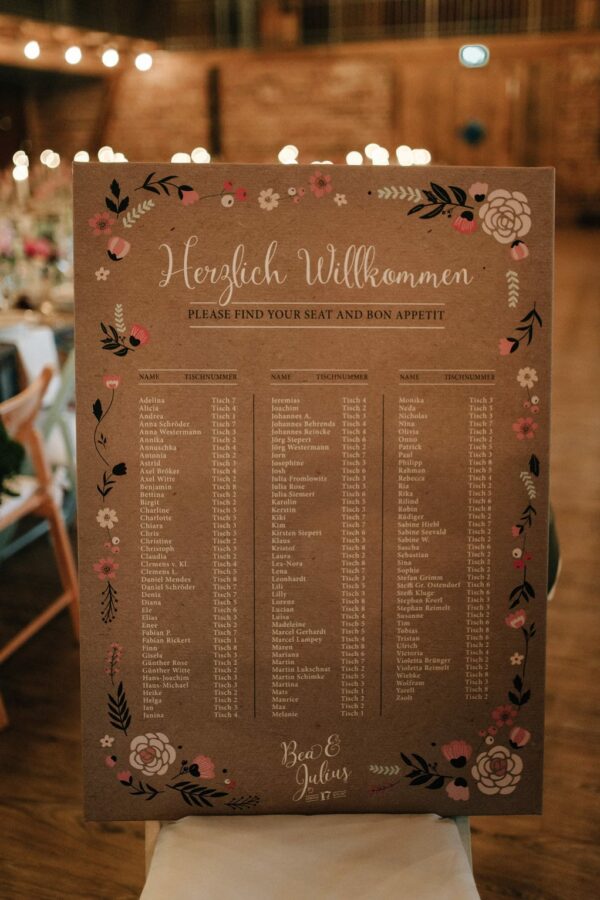 Herzlich Willkommen
PLEASE FIND YOUR SEAT AND BON APPETIT
NAME TISCHNUMMER
Adelina Tisch 7
Alicia Tisch 4
Andrea Tisch 1
Anna Schröder Tisch 7
Anna Westermann Tisch 3
Annika Tisch 2
Annuschka Tisch 4
Antonia Tisch 2
Astrid Tisch 1
Axel Bröker Tisch 4
Axel Witte Tisch 2
Benjamin Tisch 8
Bettina Tisch 2
Birgit Tisch 2
Charline Tisch 3
Charlotte Tisch 3
Chiara Tisch 6
Chris Tisch 3
Christine Tisch 2
Christoph Tisch 3
Claudia Tisch 2
Clemens v. Kl Tisch 6
Clemens L. Tisch 5
Daniel Mendes Tisch 8
Daniel Schröder Tisch 7
Deniz Tisch 7
Diana Tisch 5
Ele Tisch 6
Elias Tisch 3
Enee Tisch 2
Fabian P. Tisch 7
Fabian Rickert Tisch 1
Finn Tisch 8
Gisela Tisch 3
Günther Rose Tisch 2
Günther Witte Tisch 2
Hans-Joachim Tisch 3
Hans-Michael Tisch 3
Heike Tisch 2
Helga Tisch 2
Ian Tisch 3
Janina Tisch 4
NAME TISCHNUMMER
Jeremias Tisch 4
Joachim Tisch 2
Johannes A. Tisch 3
Johannes Behrends Tisch 4
Johannes Reincke Tisch 4
Jörg Siepert Tisch 6
Jörg Westermann Tisch 3
Jorn Tisch 7
Josephine Tisch 3
Josh Tisch 6
Julia Fromlowitz Tisch 3
Julia Rose Tisch 2
Julia Siemert Tisch 6
Karolin Tisch 5
Kerstin Tisch 3
Kiki Tisch 7
Kim Tisch 7
Kirsten Siepert Tisch 6
Klaus Tisch 2
Kristof Tisch 8
Laura Tisch 2
Lea-Nora Tisch 6
Lena Tisch 7
Leonhardt Tisch 3
Lili Tisch 5
Lilly Tisch 3
Lorenz Tisch 8
Lucian Tisch 8
Luisa Tisch 4
Madeleine Tisch 5
Marcel Gerhardt Tisch 5
Marcel Lampey Tisch 4
Maren Tisch 4
Mariana Tisch 8
Martin Tisch 7
Martin Lukschnat Tisch 2
Martin Schimke Tisch 5
Martina Tisch 2
Mats Tisch 1
Maurice Tisch 4
Max Tisch 2
Melanie Tisch 1
NAME TISCHNUMMER
Monika Tisch 3
Neda Tisch 3
Nicholas Tisch 3
Nina Tisch 7
Olivia Tisch 3
Onno Tisch 2
Patrick Tisch 5
Paul Tisch 3
Philipp Tisch 8
Rahman Tisch 7
Rebecca Tisch 4
Ria Tisch 2
Rika Tisch 5
Rilind Tisch 6
Robin Tisch 8
Rüdiger Tisch 2
Sabine Hiebl Tisch 2
Sabine Seevald Tisch 2
Sabine W. Tisch 2
Sascha Tisch 6
Sebastian Tisch 2
Sina Tisch 2
Sophie Tisch 2
Stefan Grimm Tisch 2
Steffi Gr. Ostendorf Tisch 6
Steffi Kluge Tisch 6
Stephan Krefl Tisch 3
Stephan Reimelt Tisch 2
Susanne Tisch 2
Tim Tisch 6
Tobias Tisch 7
Tristan Tisch 6
Ulrich Tisch 2
Victoria Tisch 4
Violetta Brünger Tisch 2
Violetta Reimelt Tisch 2
Wiebke Tisch 8
Wolfram Tisch 3
Yarell Tisch 8
Zsolt Tisch 2
Bea &
Julius
17